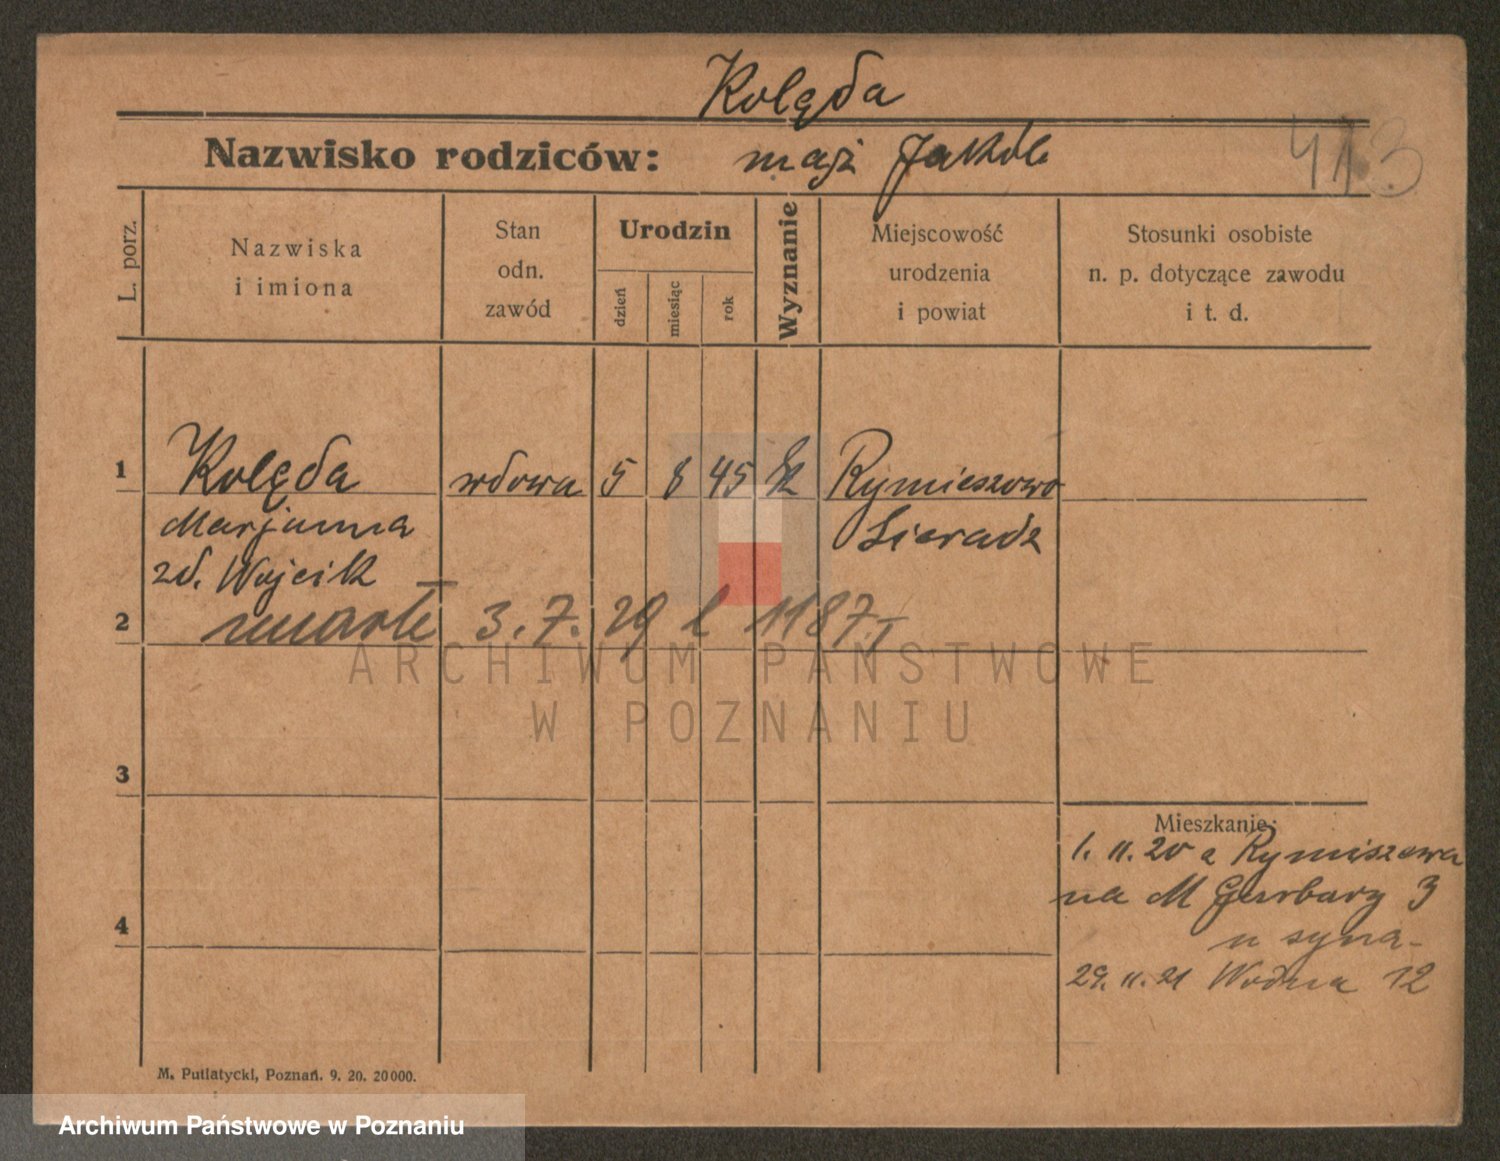 Kolęda
413
Nazwisko rodziców: mąż Jakób
L. porz.
Nazwiska
i imiona
Stan
odn.
zawód
Urodzin
dzień
miesiąc
rok
Wyznanie
Miejscowość
urodzenia
i powiat
Stosunki osobiste
n. p. dotyczące zawodu
i t. d.
1 Kolęda wdowa 5 8 45 Rymieszowo
Marjanna Sieradz
zd. Wojcik
2 umarła 3. 7. 29 1187.I
ARCHIWUM PAŃSTWOWE
W POZNANIU
3
Mieszkanie:
1. 11. 20 z Rymiszewa
na M Garbary 3
4
u syna-
29. 11. 21 Wodna 12
M. Putiatycki, Poznań. 9. 20. 20000.
Archiwum Państwowe w Poznaniu